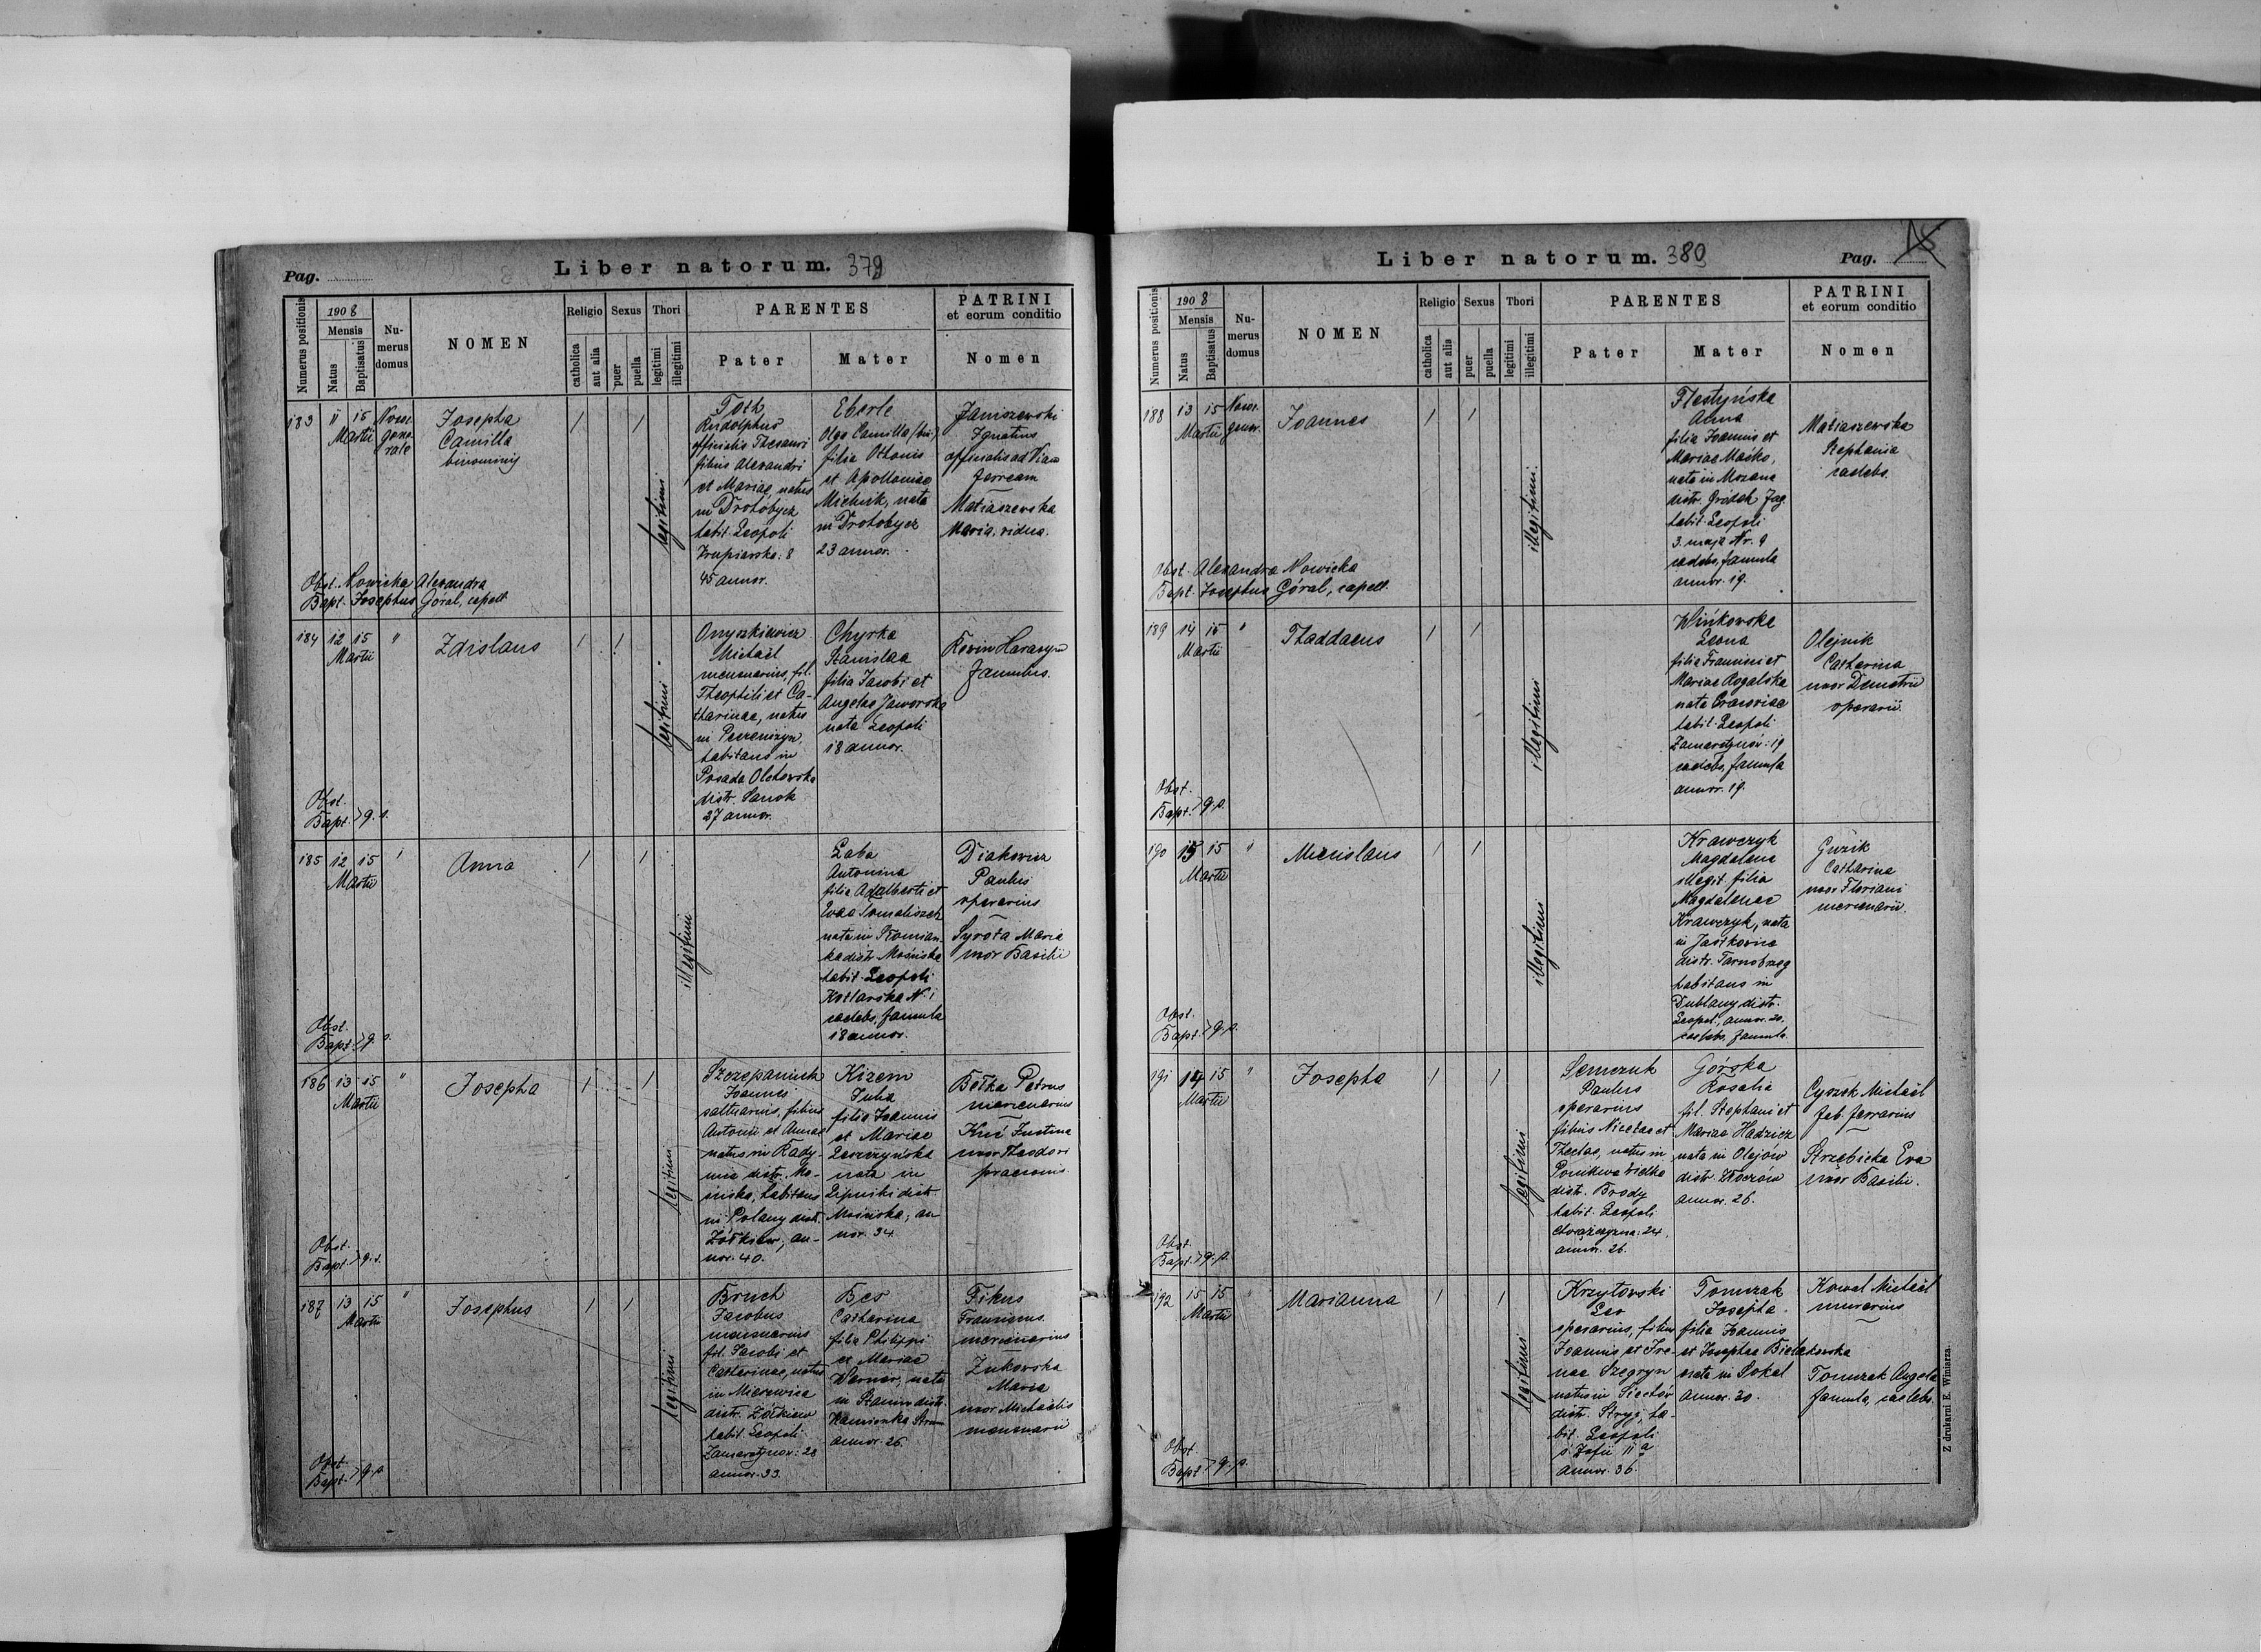 Pag.
Liber natorum. 379
Numerus positionis
1908
Mensis
Natus
Baptisatus
Numerus domus
NOMEN
Religio
catholica
aut alia
Sexus
puer
puella
Thori
legitimi
illegitimi
PARENTES
Pater
Mater
PATRINI
et eorum conditio
Nomen
183
11 15
Martii
Josepha
Camilla
binominis
legitimi
Toth
Rudolphus
officialis Thesauri
filius Alexandri
et Mariae, natus
in Drohobycz
habit. Leopoli
45 annor.
Eberle
Olga Camilla (bin.)
filia Othonis
et Apolloniae
Michnik, nata
in Drohobycz
23 annor.
Janiszewski
Ignatius
officialis ad Viam
ferream
Matiaszewska
Maria, vidua.
Obst. Nowicka Alexandra
Bapt. Josephus Góral, capell.
184
12 15
Martii
"
Zdislaus
legitimi
Onyszkiewicz
Michaël
mercenarius, fil.
Theophili et Ca-
tharinae, natus
in
habitans in
Posada Olchowska
distr. Sanok
27 annor.
Chyrka
Stanislaa
filia Jacobi et
Angelae Jaworska
nata Leopoli
18 annor.
famulus.
Obst.
Bapt. > q. s.
185
12 15
Martii
Anna
illegitimi
Łaba
Antonina
filia Adalberti et
Evae
nata in
distr. Mościska
habit. Leopoli
Kotlarska N. 1
caelebs, famula
18 annor.
Diakowicz
Paulus
operarius
Syrota Maria
uxor Basilii
Obst.
Bapt. > q. s.
186
13 15
Martii
"
Josepha
legitimi
Szczepaniuk
Joannes
saltuarius, filius
Antonii et Annae
natus in Rady-
nia distr. Mo-
ściska, habitans
in Polany distr.
Żółkiew, an-
nor. 40.
Kizem
Julia
filia Joannis
et Mariae
Leszczyńska
nata in
Lipniki distr.
Mościska, an
nor. 34
Bełka Petrus
mercenarius
Justina
uxor Theodori
praeconis.
Obst.
Bapt. > q. s.
187
13 15
Martii
"
Josephus
legitimi
Bruch
Jacobus
mercenarius
fil. Jacobi et
Catharinae, natus
in Mierzwica
distr. Żółkiew
habit. Leopoli
Zamarstynow: 28
annor. 33.
Bes
Catharina
filia Philippi
et Mariae
Werner, nata
in Stanin distr.
Kamionka Strum
annor. 26.
Fikus
Franciscus
mercenarius
Żukowska
Maria
uxor Michaëlis
mercenarii
Obst.
Bapt. > q. s.
Liber natorum. 380
Pag.
Numerus positionis
1908
Mensis
Natus
Baptisatus
Numerus domus
NOMEN
Religio
catholica
aut alia
Sexus
puer
puella
Thori
legitimi
illegitimi
PARENTES
Pater
Mater
PATRINI
et eorum conditio
Nomen
188
13 15
Martii
Joannes
illegitimi
Anna
filia Joannis et
Mariae Maćko,
nata in Mszana
distr. Gródek Jag.
habit. Leopoli
3. maja Nr. 9
caelebs, famula
annor. 19.
Matiaszewska
Stephania
caelebs.
Obst. Alexandra Nowicka
Bapt. Josephus Góral, capell.
189
14 15
Martii
"
Thaddaeus
illegitimi
Leona
filia Francisci et
Mariae Rogalska
nata Cracoviae
habit. Leopoli
Zamarstynów: 19
caelebs, famula
annor. 19.
Olejnik
Catharina
uxor Demetrii
operarii
Obst.
Bapt. > q. s.
190
15 15
Martii
"
Miecislaus
illegitimi
Krawczyk
Magdalena
illegit. filia
Magdalenae
Krawczyk, nata
in Jastkowice
distr. Tarnobrzeg
habitans in
Dublany distr.
Leopol., annor. 20.
caelebs, famula
Guzik
Catharina
uxor Floriani
mercenarii.
Obst.
Bapt. > q. s.
191
14 15
Martii
"
Josepha
legitimi
Semczuk
Paulus
operarius
filius Nicetae et
Theclae, natus in
Ponikwa Wielka
distr. Brody
habit. Leopoli
annor. 26.
Górska
Rosalia
fil. Stephani et
Mariae Hadzicz
nata in Olejów
distr. Złoczów
annor. 26.
Cyrzek Michaël
fab. ferrarius
Strzębicka Eva
uxor Basilii.
Obst.
Bapt. > q. s.
192
15 15
Martii
"
Marianna
legitimi
Krzytowski
Leo
operarius, filius
Joannis et Ire-
nae Szegryn
natus in Siechów
distr. Stryj, ha-
bit. Leopoli
ś. Zofii 11 a
annor. 36.
Tomczak
Josepha
filia Joannis
et Josephae Bielakowska
nata in Sokal
annor. 30.
Kowal Michaël
murarius
Tomczak Angela
famula, caelebs.
Obst.
Bapt. > q. s.
Z drukarni E. Winiarza.